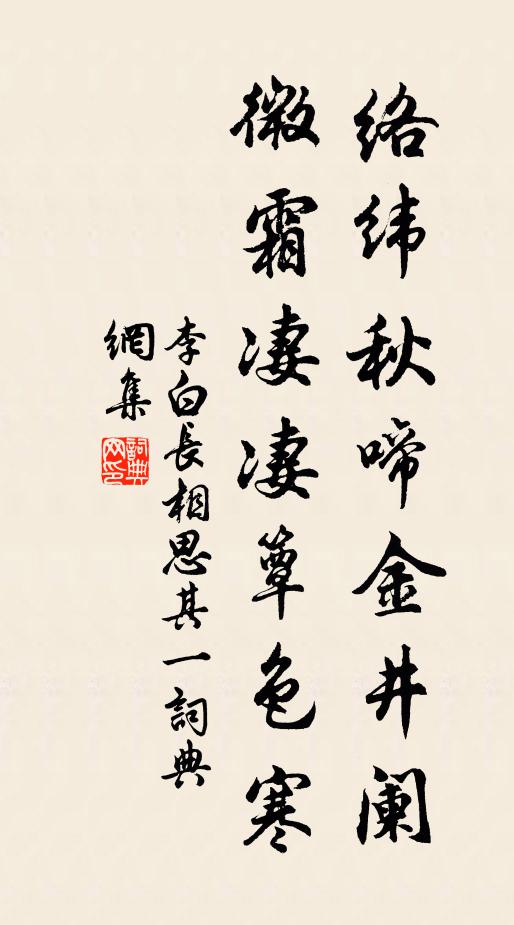 络纬秋啼金井阑
微霜凄凄簟色寒
李白長相思其一詞典
網集
詞典网印